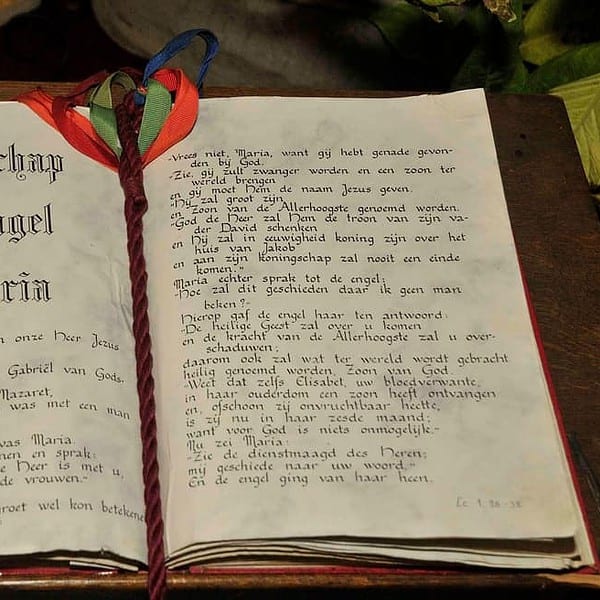 chap
ngel
ria
n onze Heer Jezus
Gabriël van Gods-
Nazaret,
was met een man
was Maria.
nen en sprak:
e Heer is met u,
de vrouwen."
groet wel kon betekenen
-Vrees niet, Maria, want gij hebt genade gevon-
den bij God.
-Zie, gij zult zwanger worden en een zoon ter
wereld brengen
en gij moet Hem de naam Jezus geven.
"Hij zal groot zijn
en Zoon van de Allerhoogste genoemd worden.
-God de Heer zal Hem de troon van zijn va-
der David schenken
en Hij zal in eeuwigheid koning zijn over het
huis van Jakob
en aan zijn koningschap zal nooit een einde
komen."
Maria echter sprak tot de engel:
-Hoe zal dit geschieden daar ik geen man
beken?-
Hierop gaf de engel haar ten antwoord:
-De heilige Geest zal over u komen
en de kracht van de Allerhoogste zal u over-
schaduwen;
daarom ook zal wat ter wereld wordt gebracht
heilig genoemd worden, Zoon van God.
-Weet dat zelfs Elisabet, uw bloedverwante,
in haar ouderdom een zoon heeft ontvangen
en, ofschoon zij onvruchtbaar heette,
is zij nu in haar zesde maand;
want voor God is niets onmogelijk.-
Nu zei Maria:
-Zie de dienstmaagd des Heren;
mij geschiede naar uw woord."
En de engel ging van haar heen.
Lc. 1, 26-38